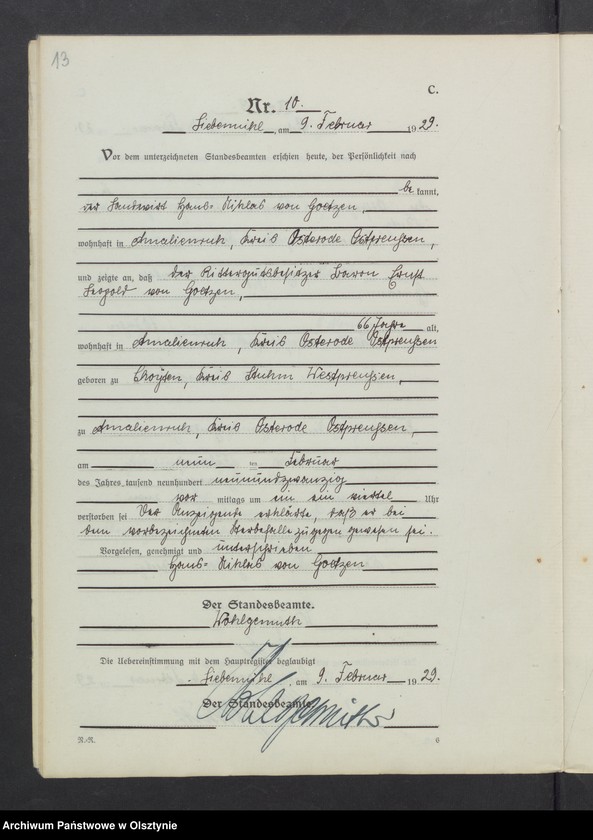 13
C.
Nr. 10.
Liebemühl, am 9. Februar 1929.
Vor dem unterzeichneten Standesbeamten erschien heute, der Persönlichkeit nach
be kannt,
der Landwirt Hans-Niklas von Goetzen,
wohnhaft in Amalienruh, Kreis Osterode Ostpreussen,
und zeigte an, daß der Rittergutsbesitzer Baron Ernst
Leopold von Goetzen,
66 Jahre alt,
wohnhaft in Amalienruh, Kreis Osterode Ostpreussen
geboren zu Choyten, Kreis Stuhm Westpreussen,
zu Amalienruh, Kreis Osterode Ostpreussen,
am neun ten Februar
des Jahres tausend neunhundert neunundzwanzig
vor mittags um ein ein viertel Uhr
verstorben sei Der Anzeigende erklärte, daß er bei
dem vorbezeichneten Sterbefalle zugegen gewesen sei.
Vorgelesen, genehmigt und unterschrieben
Hans-Niklas von Goetzen
Der Standesbeamte.
Wohlgemuth
Die Uebereinstimmung mit dem Hauptregister beglaubigt
Liebemühl, am 9. Februar 1929.
Der Standesbeamte
Wohlgemuth
R.-R.
Archiwum Państwowe w Olsztynie